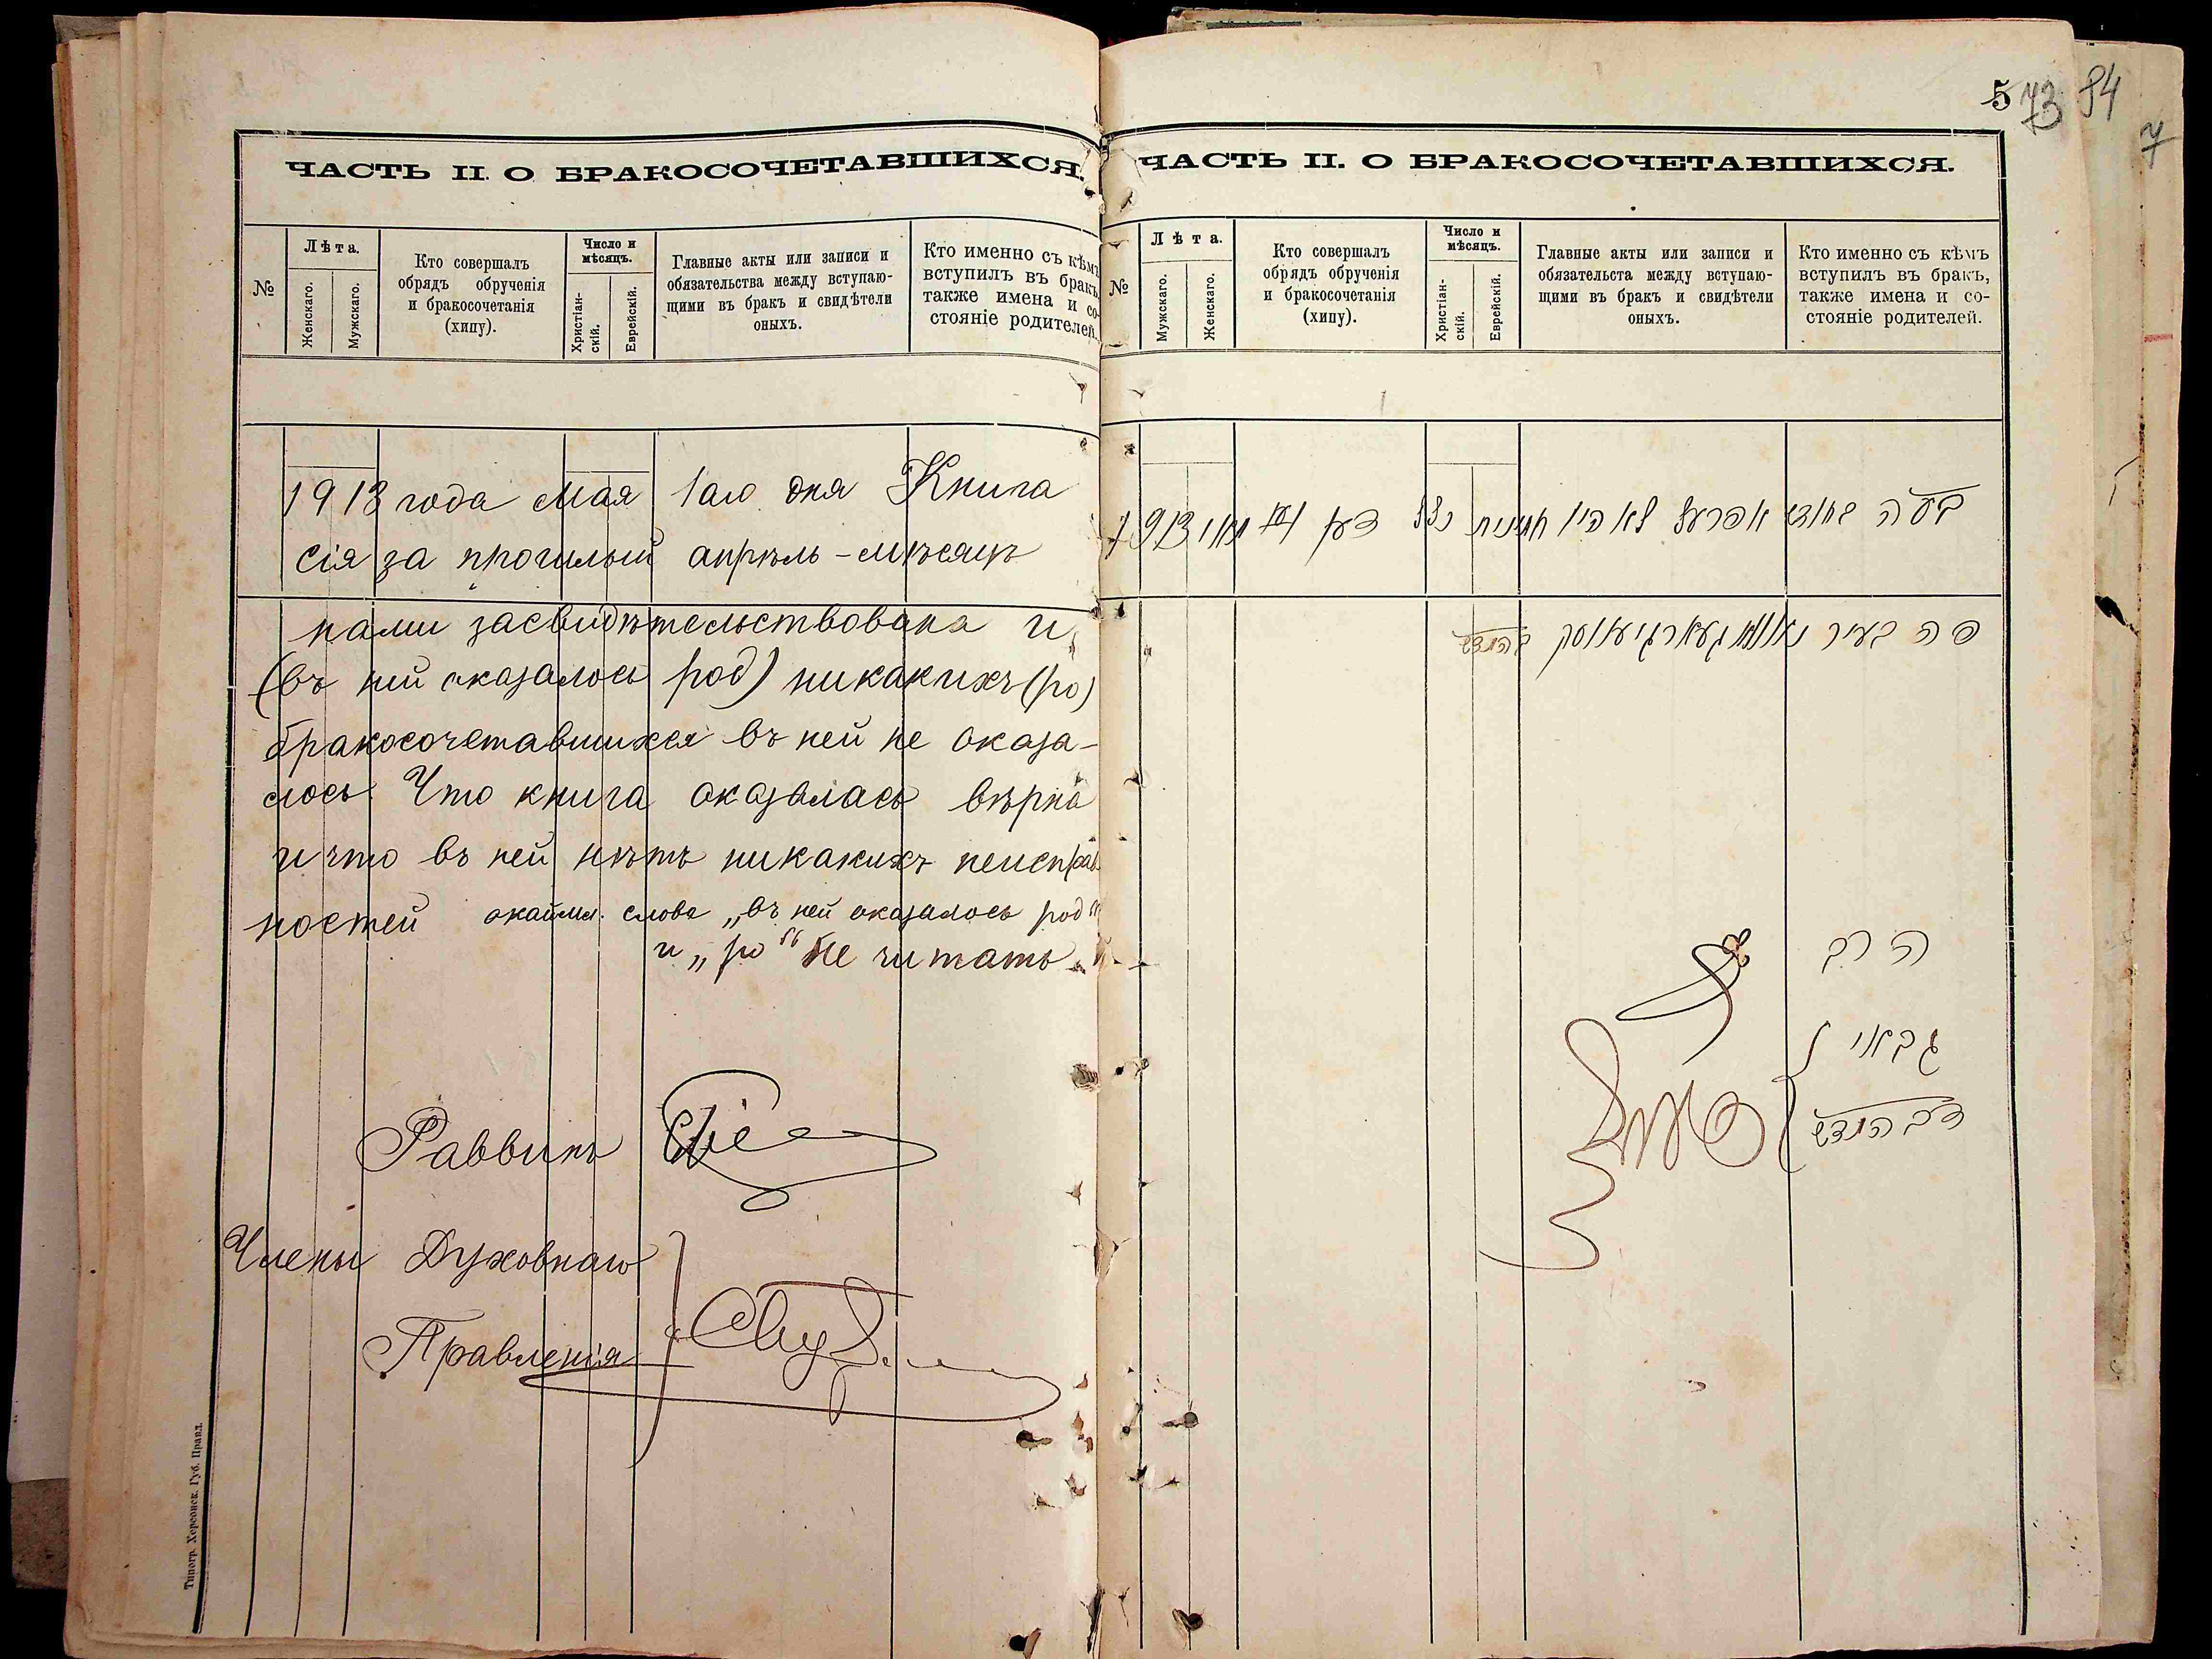 5 73 84
7
ЧАСТЬ II. О БРАКОСОЧЕТАВШИХСЯ.
№
Лѣта.
Женскаго.
Мужскаго.
Кто совершалъ
обрядъ обрученія
и бракосочетанія
(хипу).
Число и
мѣсяцъ.
Христіан-
скій.
Еврейскій.
Главные акты или записи и
обязательства между вступаю-
щими въ бракъ и свидѣтели
оныхъ.
Кто именно съ кѣмъ
вступилъ въ бракъ,
также имена и со-
стояніе родителей.
1913 года мая 1аго дня Книга
сія за прошлый апрѣль-мѣсяцъ
нами засвидѣтельствована и
(въ ней оказалось род) никакихъ (ро)
бракосочетавшихся въ ней не оказа-
лось. Что книга оказалась вѣрна
и что въ ней нѣтъ никакихъ неисправ
ностей окаймл. слова „въ ней оказалось род"
и „ро" не читать
Раввинъ
Члены Духовнаго
Правленія
Типогр. Херсонск. Губ. Правл.
ЧАСТЬ II. О БРАКОСОЧЕТАВШИХСЯ.
№
Лѣта.
Мужскаго.
Женскаго.
Кто совершалъ
обрядъ обрученія
и бракосочетанія
(хипу).
Число и
мѣсяцъ.
Христіан-
скій.
Еврейскій.
Главные акты или записи и
обязательста между вступаю-
щими въ бракъ и свидѣтели
оныхъ.
Кто именно съ кѣмъ
вступилъ въ бракъ,
также имена и со-
стояніе родителей.
אפריל לא היו 1913
פה בעיר
הרב
גבאי